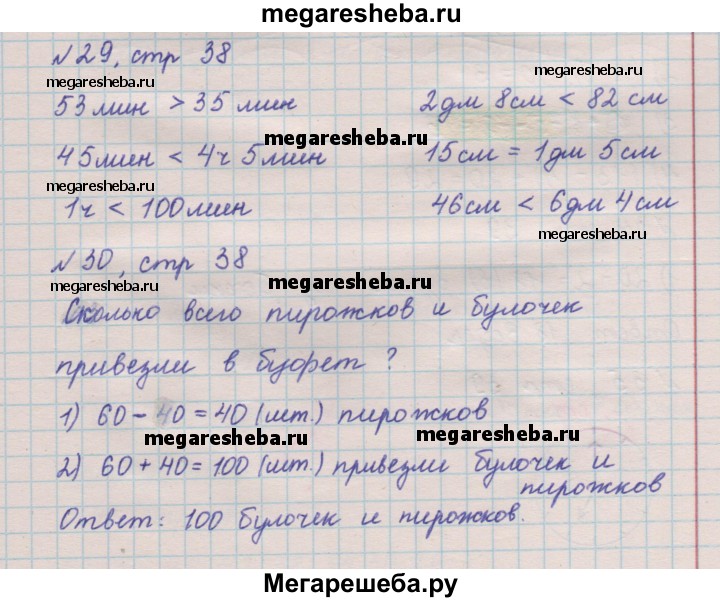 megaresheba.ru
№29, стр 38
megaresheba.ru
megaresheba.ru
53 мин > 35 мин
2дм 8см < 82 см
megaresheba.ru
45мин < 4ч 5мин
15см = 1дм 5см
megaresheba.ru
1ч < 100мин
46см < 6дм 4см
megaresheba.ru
№30, стр 38
megaresheba.ru
megaresheba.ru
Сколько всего пирожков и булочек
привезли в буфет?
1) 60 - 40 = 40 (шт.) пирожков
megaresheba.ru
megaresheba.ru
2) 60 + 40 = 100 (шт.) привезли булочек и
пирожков
Ответ: 100 булочек и пирожков.
Мегарешеба.ру